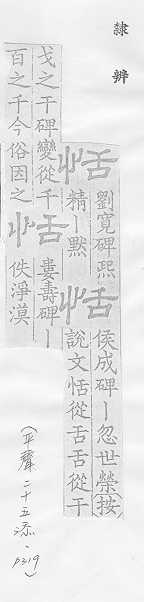 隸辨
恬
劉寬碑熙
精丨黙
恬
侯成碑丨忽世榮(按
說文恬從舌舌從干
戈之干碑變從千
百之千今俗因之
恬
婁壽碑丨
佚淨漠
(平聲二十五添、p319)